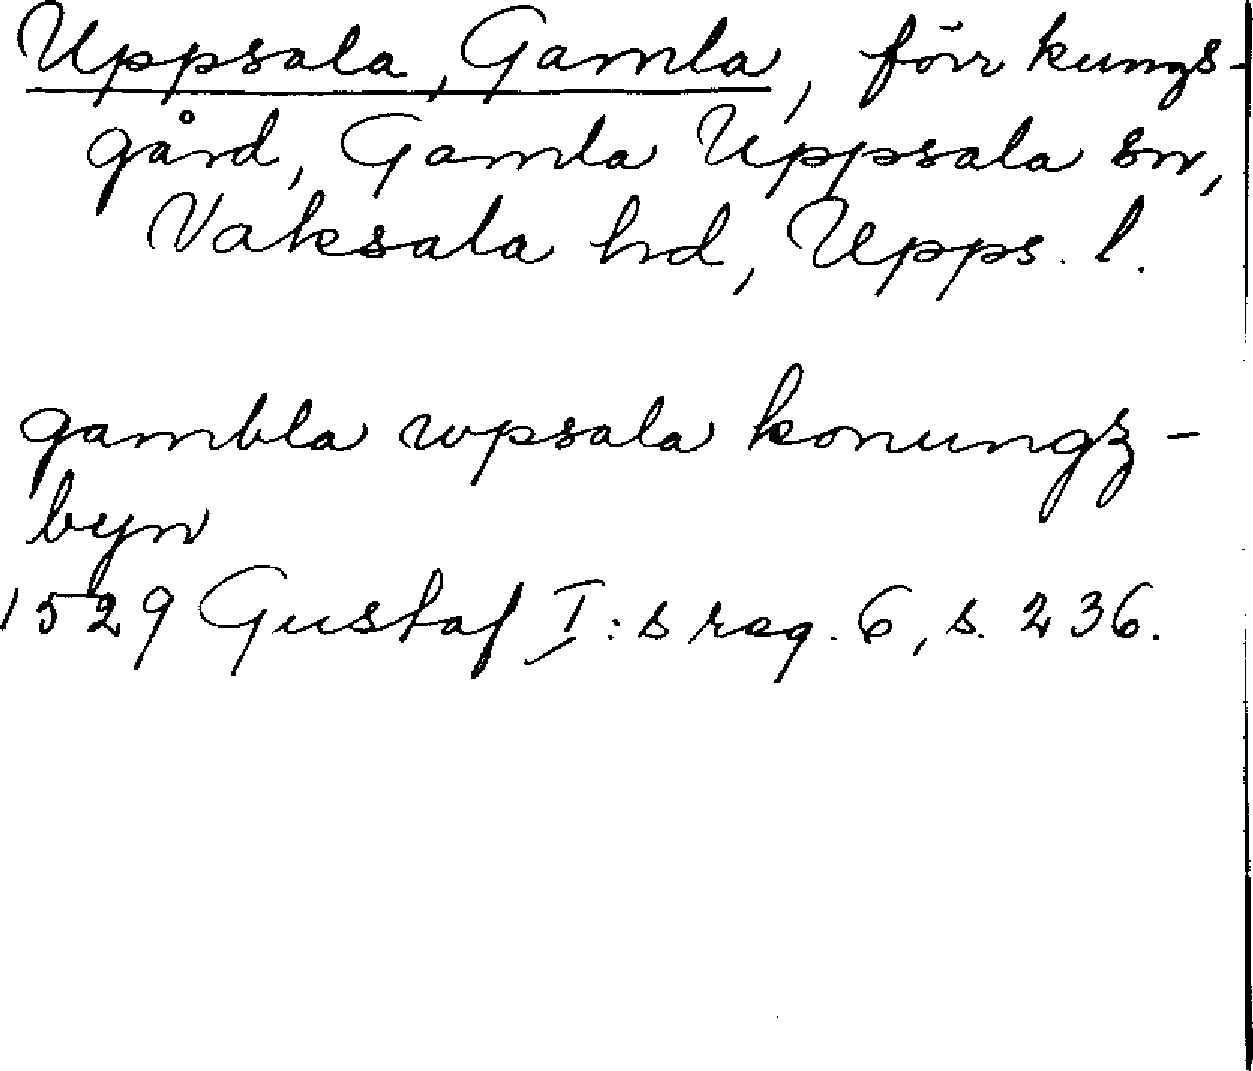 Uppsala, Gamla, förr kungs-
gård, Gamla Uppsala sn,
Vaksala hd, Upps. l.
gambla wpsala konungz-
byn
1529 Gustaf I:s reg. 6, s. 236.